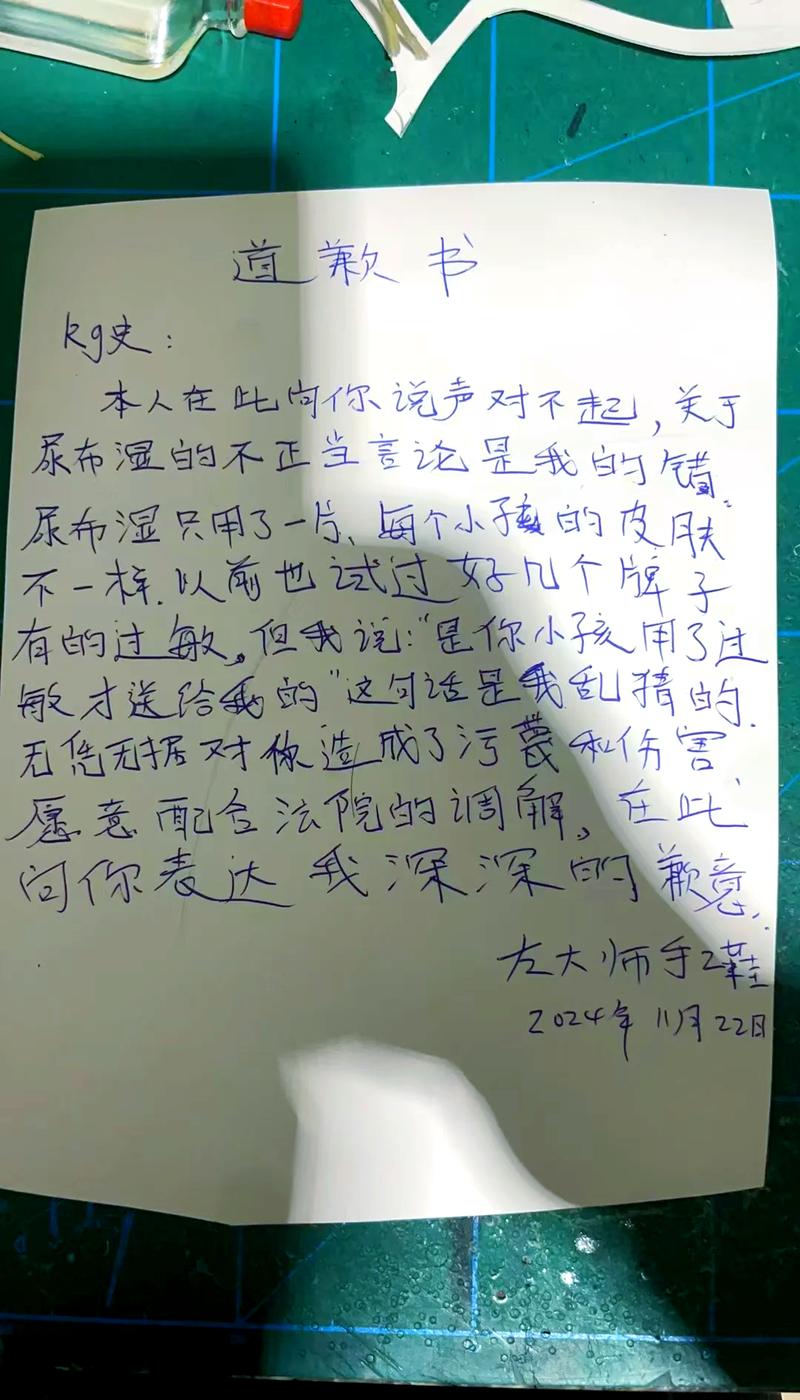 道歉书
kg史：
本人在此向你说声对不起，关于
尿布湿的不正当言论是我的错。
尿布湿只用了一片、每个小孩的皮肤
不一样．以前也试过好几个牌子
有的过敏。但我说："是你小孩用了过
敏才送给我的"这句话是我乱猜的．
无凭无据对你造成了污蔑和伤害
愿意配合法院的调解，在此
向你表达我深深的歉意．
左大师手工鞋
2024年11月22日